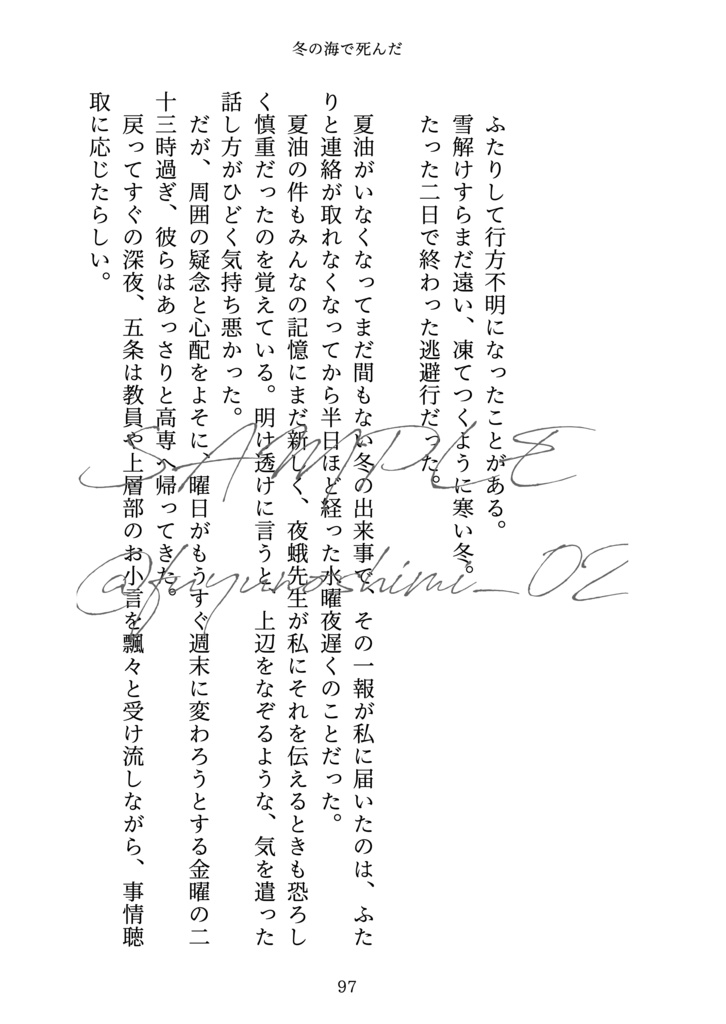 冬の海で死んだ
ふたりして行方不明になったことがある。
雪解けすらまだ遠い、凍てつくように寒い冬。
たった二日で終わった逃避行だった。
夏油がいなくなってまだ間もない冬の出来事で、その一報が私に届いたのは、ふた
りと連絡が取れなくなってから半日ほど経った水曜夜遅くのことだった。
夏油の件もみんなの記憶にまだ新しく、夜蛾先生が私にそれを伝えるときも恐ろし
く慎重だったのを覚えている。明け透けに言うと、上辺をなぞるような、気を遣った
話し方がひどく気持ち悪かった。
だが、周囲の疑念と心配をよそに、曜日がもうすぐ週末に変わろうとする金曜の二
十三時過ぎ、彼らはあっさりと高専へ帰ってきた。
戻ってすぐの深夜、五条は教員や上層部のお小言を飄々と受け流しながら、事情聴
取に応じたらしい。
SAMPLE
@fuyunoshimi_02
97